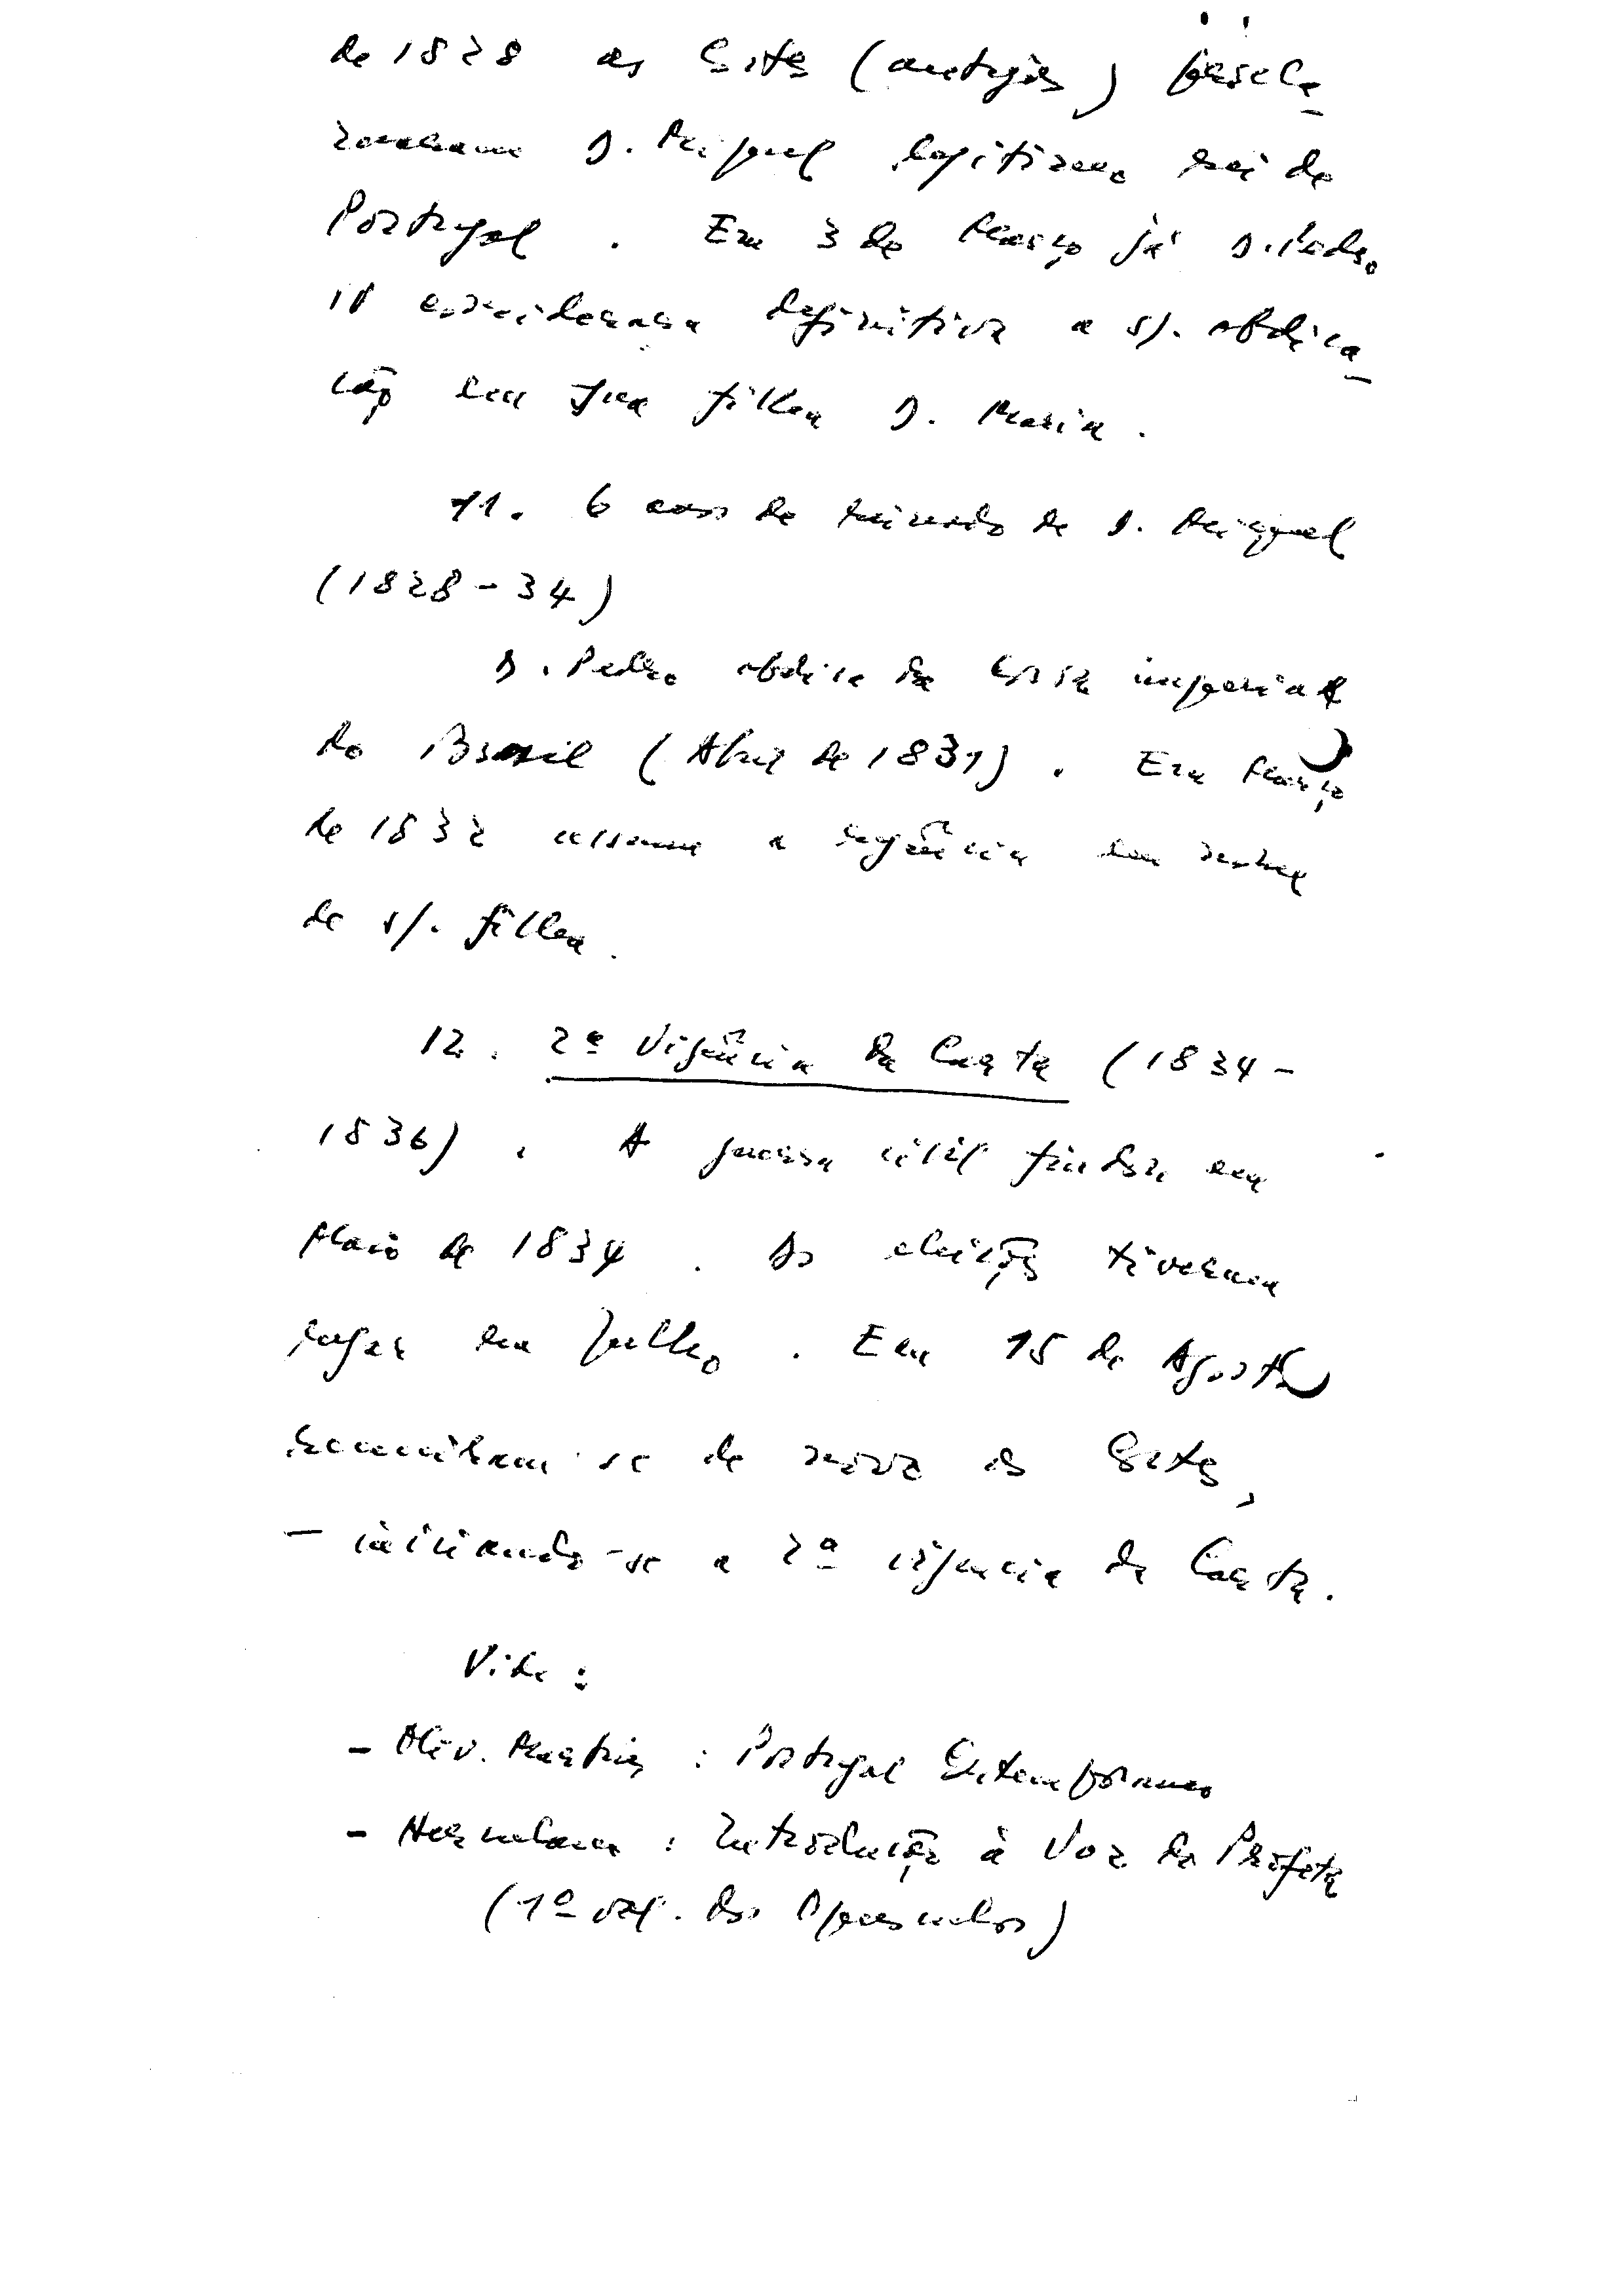 de 1828 as Cortes (antigas) procla-
maram D. Miguel legítimo rei de
Portugal. Em 3 de Março já D. Pedro
IV considerara definitiva a s/. abdica-
ção em sua filha D. Maria.
11. 6 anos de reinado de D. Miguel
(1828-34)
D. Pedro abdica da coroa imperial
do Brasil (Abril de 1831). Em Março
de 1832 assume a regência em nome
de s/. filha.
12. 2ª Vigência da Carta (1834-
1836). A guerra civil findou em
Maio de 1834. As eleições tiveram
lugar em Julho. Em 15 de Agosto
reuniram-se de novo as Cortes,
- iniciando-se a 2ª vigência da Carta.
Vide:
- Oliv. Martins: Portugal Contemporaneo
- Herculano: Introdução à Voz do Profeta
(1º vol. dos Opusculos)